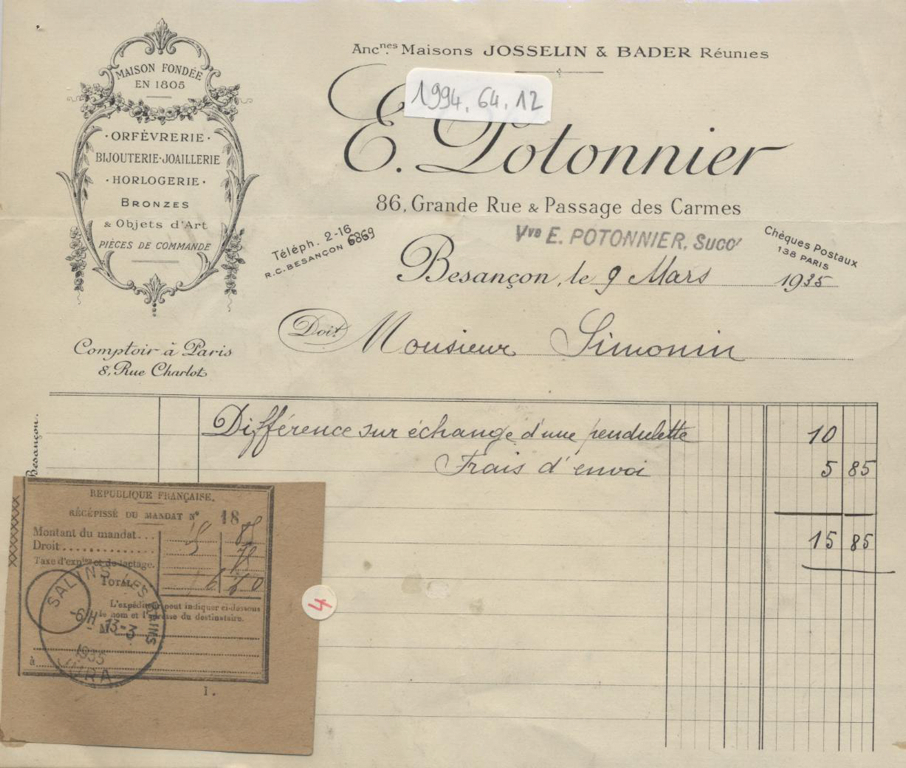 Anc.nes Maisons JOSSELIN & BADER Réunies
1994.64.12
E. Potonnier
86, Grande Rue & Passage des Carmes
MAISON FONDÉE
EN 1805
·ORFÈVRERIE·
BIJOUTERIE·JOAILLERIE
·HORLOGERIE·
BRONZES
& Objets d'Art
PIÈCES DE COMMANDE
Comptoir à Paris
8, Rue Charlot
Téléph. 2-16
R.C. BESANÇON 6869
Vve E. POTONNIER, Succr
Chèques Postaux
138 PARIS
Besançon, le 9 Mars 1935
Doit Monsieur Simonin
Différence sur échange d'une pendulette 10
Frais d'envoi 5 85
15 85
Besançon.
RÉPUBLIQUE FRANÇAISE.
RÉCÉPISSÉ DU MANDAT N° 18
Montant du mandat...
Droit
Total
L'expéditeur peut indiquer ci-dessous
le nom et l'adresse du destinataire.
à
SALINS LES BAINS
-6H 13-3
1935
JURA
1.
4